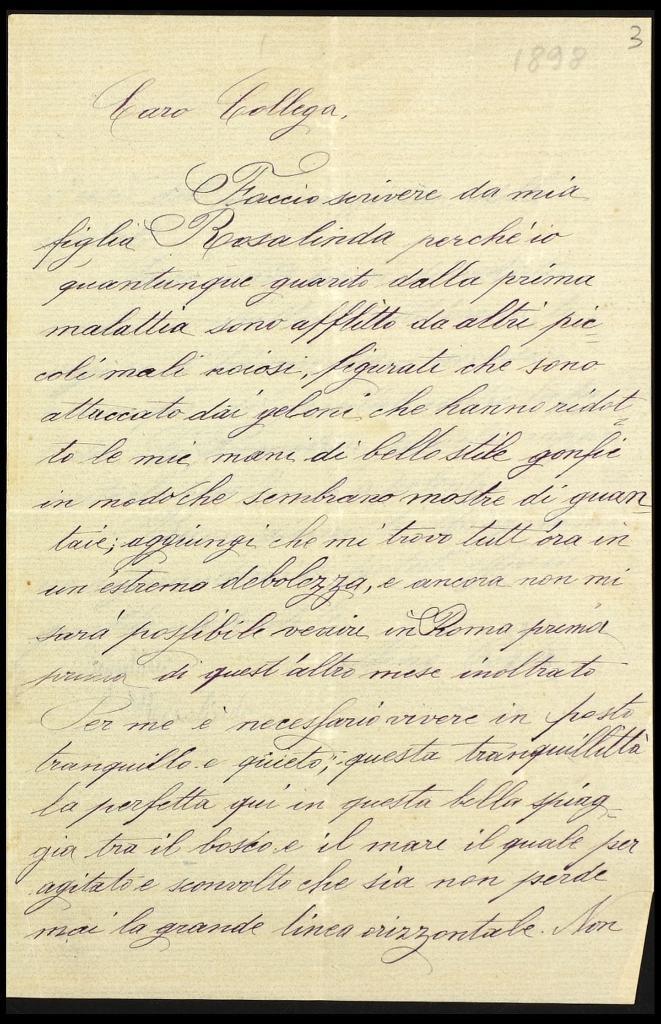 3
1898
Caro Collega,
Faccio scrivere da mia
figlia Rosalinda perché io
quantunque guarito dalla prima
malattia sono afflitto da altri pic=
coli mali noiosi, figurati che sono
attaccato dai geloni che hanno ridot=
to le mie mani di bello stile gonfie
in modo che sembrano mostre di guan
taie; aggiungi che mi trovo tutt'ora in
un estrema debolezza, e ancora non mi
sarà possibile venire in Roma prima
prima di quest'altro mese inoltrato
Per me è necessario vivere in posto
tranquillo e quieto; questa tranquillittà
la perfetta qui in questa bella spiag=
gia tra il bosco e il mare il quale per
agitato e sconvolto che sia non perde
mai la grande linea orizzontale. Non